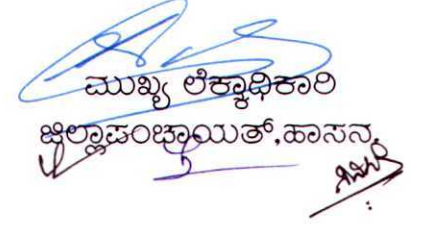 ಮುಖ್ಯ ಲೆಕ್ಕಾಧಿಕಾರಿ
ಜಿಲ್ಲಾಪಂಚಾಯತ್,ಹಾಸನ.